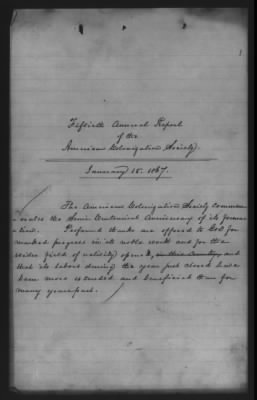 Fiftieth Annual Report
of the
American Colonization Society.
January 15. 1867.
The American Colonization Society commemo-
rates the Semi Centennial Anniversary of its forma-
tion. Profound thanks are offered to God for
marked progress in its noble work and for the
wider field of usefulness opened, in this Country and
that its labors during the year just closed have
been more extended and beneficial than for
many years past.